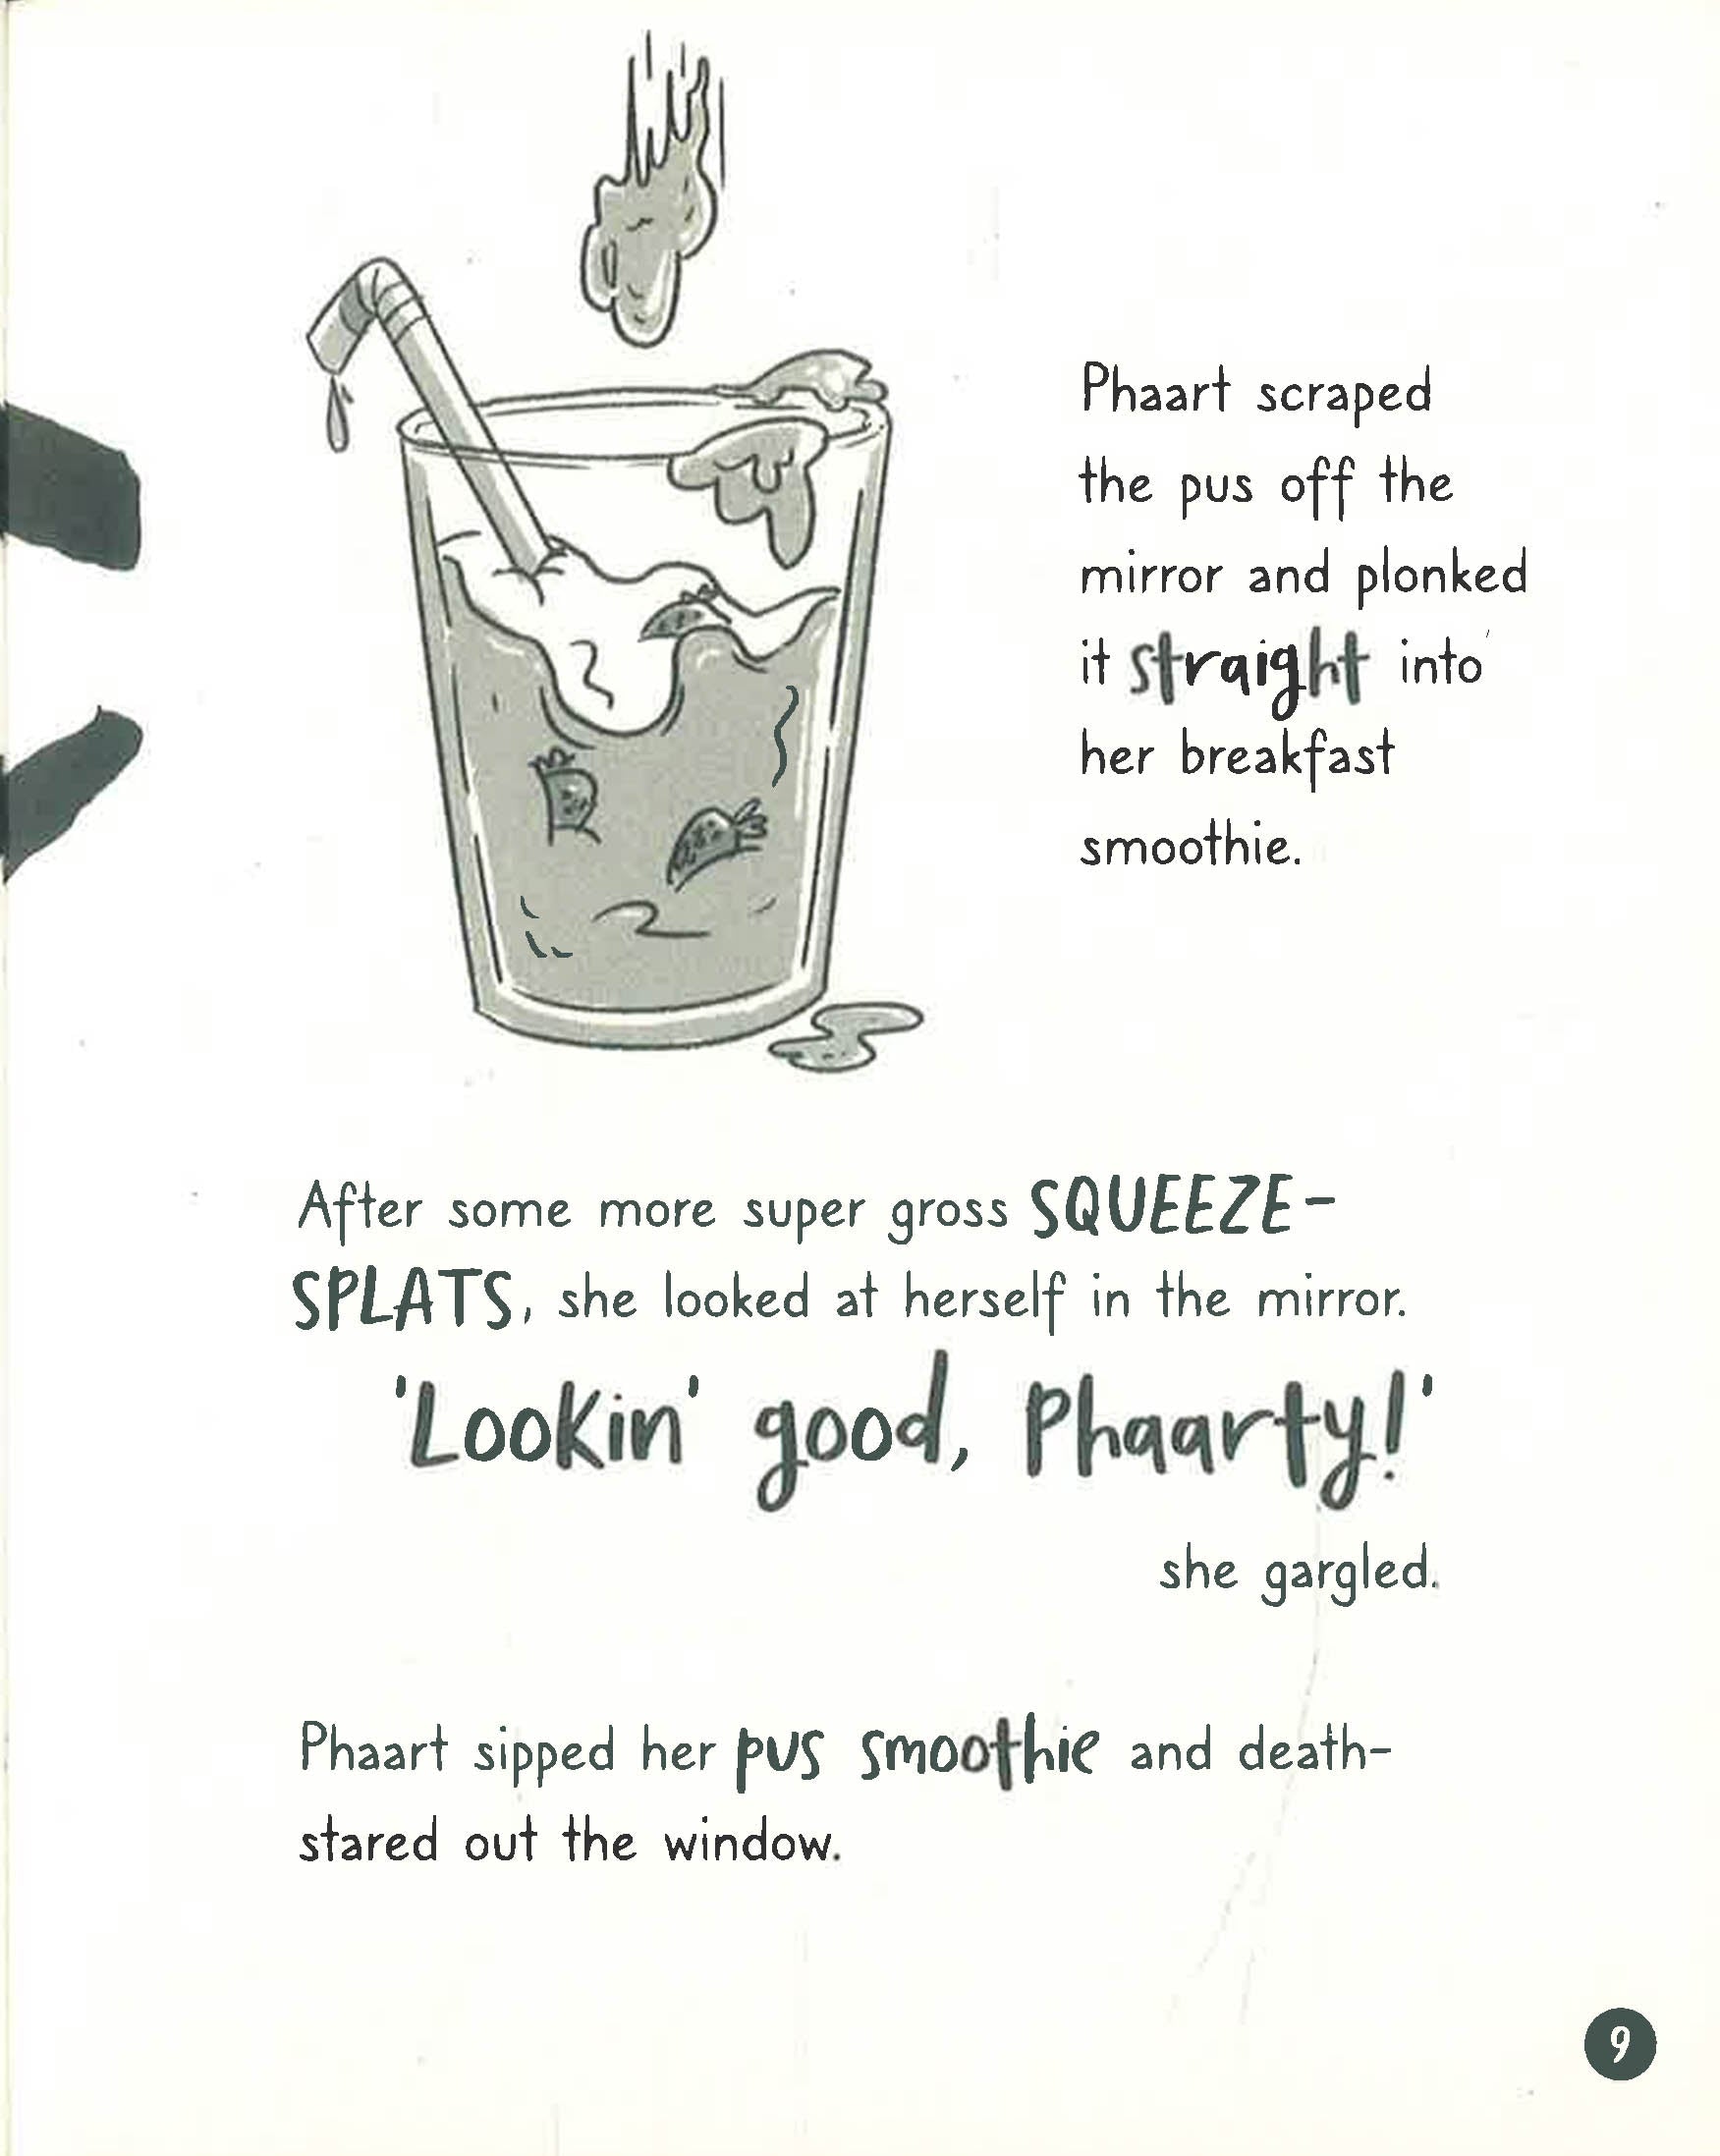 Phaart scraped
the pus off the
mirror and plonked
it straight into
her breakfast
smoothie.
After some more super gross SQUEEZE-
SPLATS, she looked at herself in the mirror.
'Lookin' good, Phaarty!'
she gargled.
Phaart sipped her pus smoothie and death-
stared out the window.
9